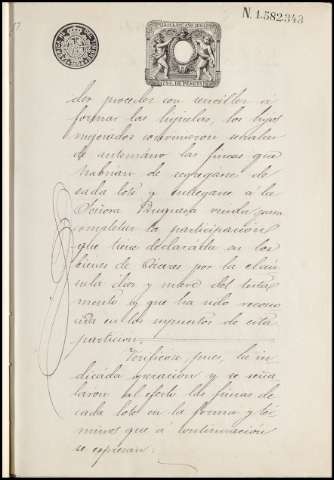 N. 1.582.343
der proceder con sencillez á
formar las hijuelas, los hijos
mejorados convinieron señalar
de antemano las fincas que
habrian de segregarse de
cada lote y entregarse á la
Señora Burguesa viuda para
completar la participacion
que tiene declarada en los
bienes de por la cláu
sula diez y nueve del testa
mento y que ha sido recono
cida en los supuestos de esta
particion.
Verificose, pues, la in
dicada operacion y se seña
laron al efecto las fincas de
cada lote en la forma y tér
minos que á continuacion
se expresan: